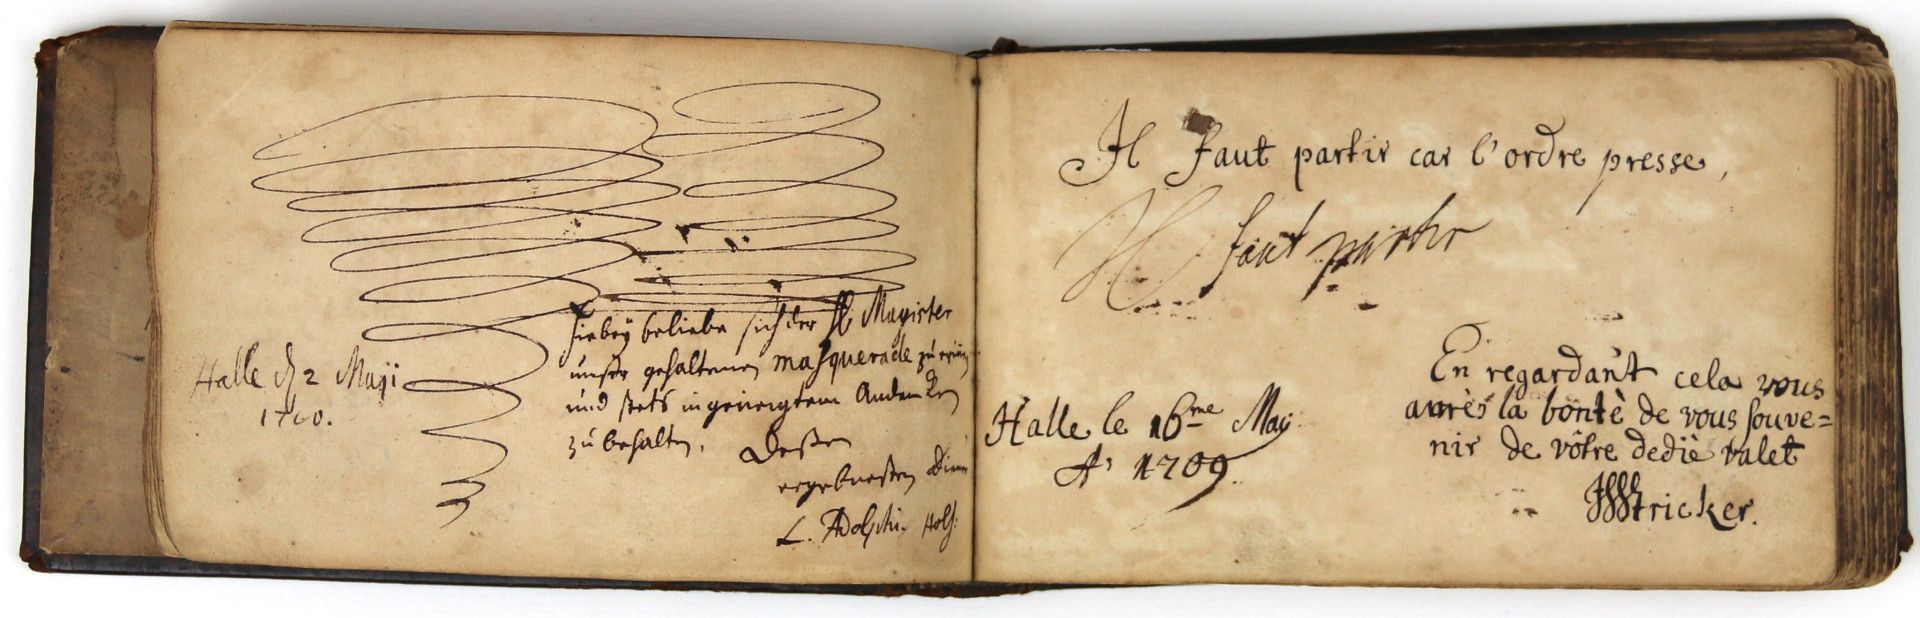 Halle d 2 Maji
1710.
hiebey beliebe sich der H. Magister
unser gehaltenen masquerade zu
und stets in geneigtem Andencken
zu behalten. Deßen
ergebensten Diener
L. Adolphi. Hols:
Il faut partir car l'ordre presse,
Il faut partir
Halle le 16me May
Aº 1709.
En regardant cela vous
aurès la bontè de vous souve=
nir de vôtre dediè valet
Stricker.